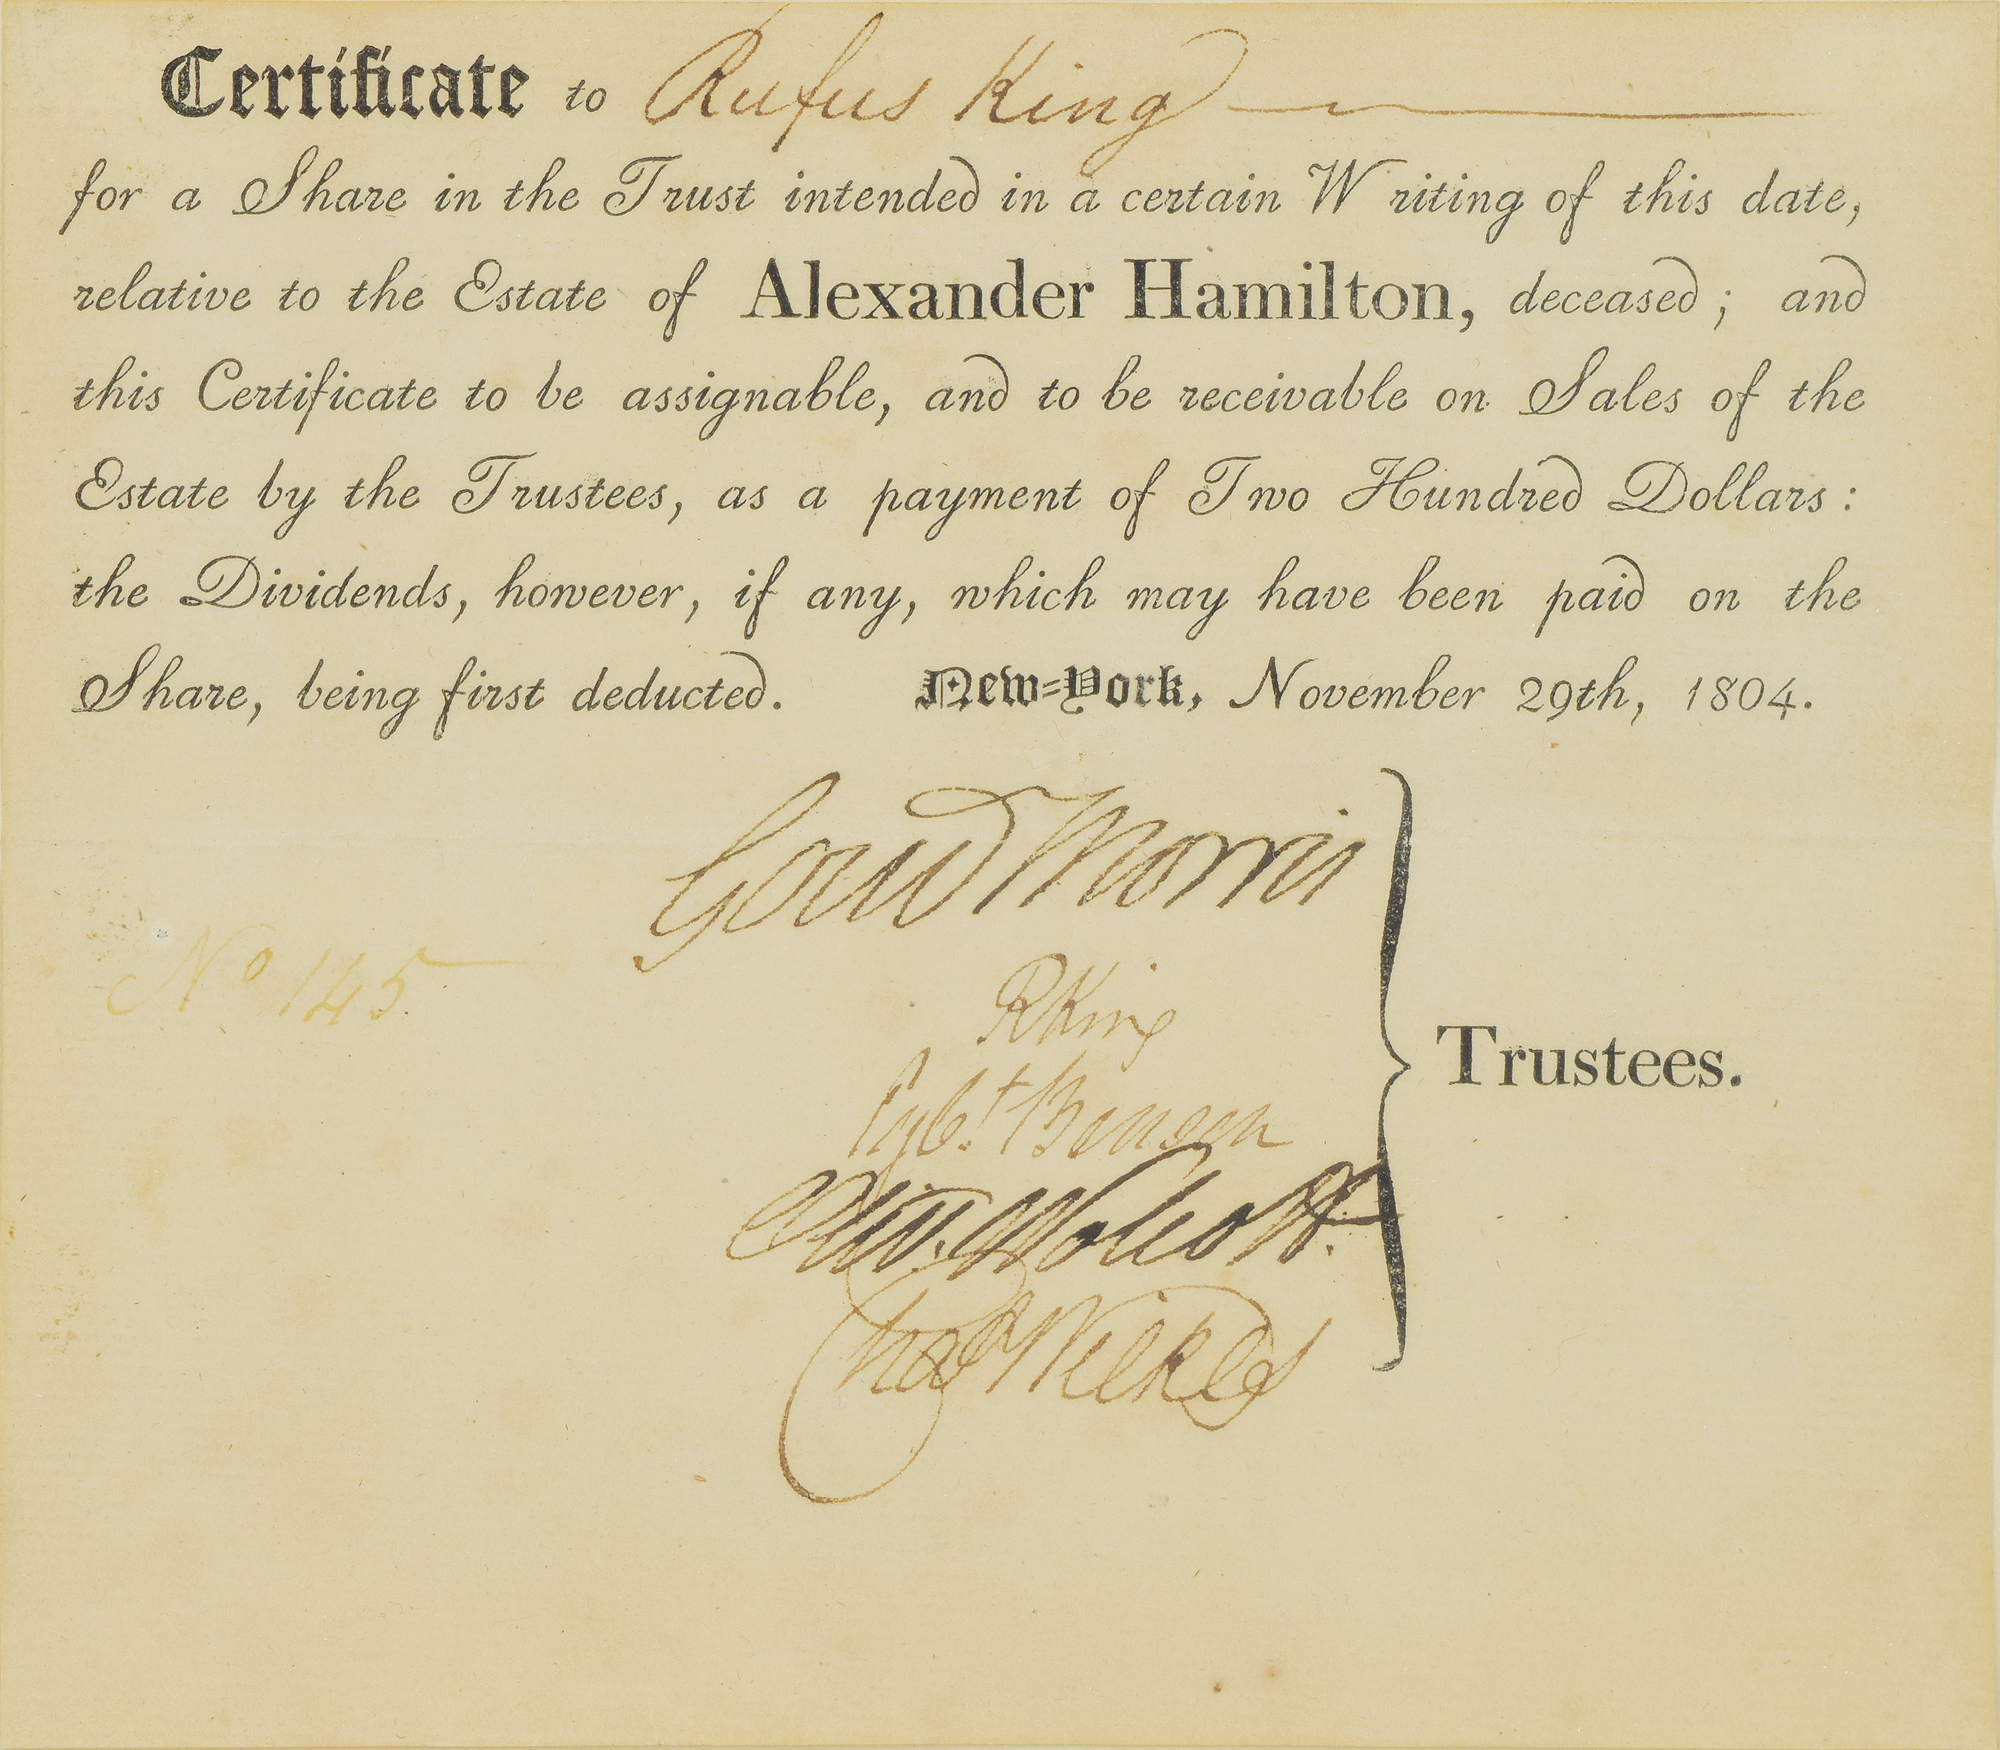 Certificate to Rufus King
for a Share in the Trust intended in a certain Writing of this date,
relative to the Estate of Alexander Hamilton, deceased; and
this Certificate to be assignable, and to be receivable on Sales of the
Estate by the Trustees, as a payment of Two Hundred Dollars:
the Dividends, however, if any, which may have been paid on the
Share, being first deducted. New-York, November 29th, 1804.
Gouv Morris
R King
Egbt. Benson
Oliv. Wolcott.
Chas Wilkes
Trustees.
No 145